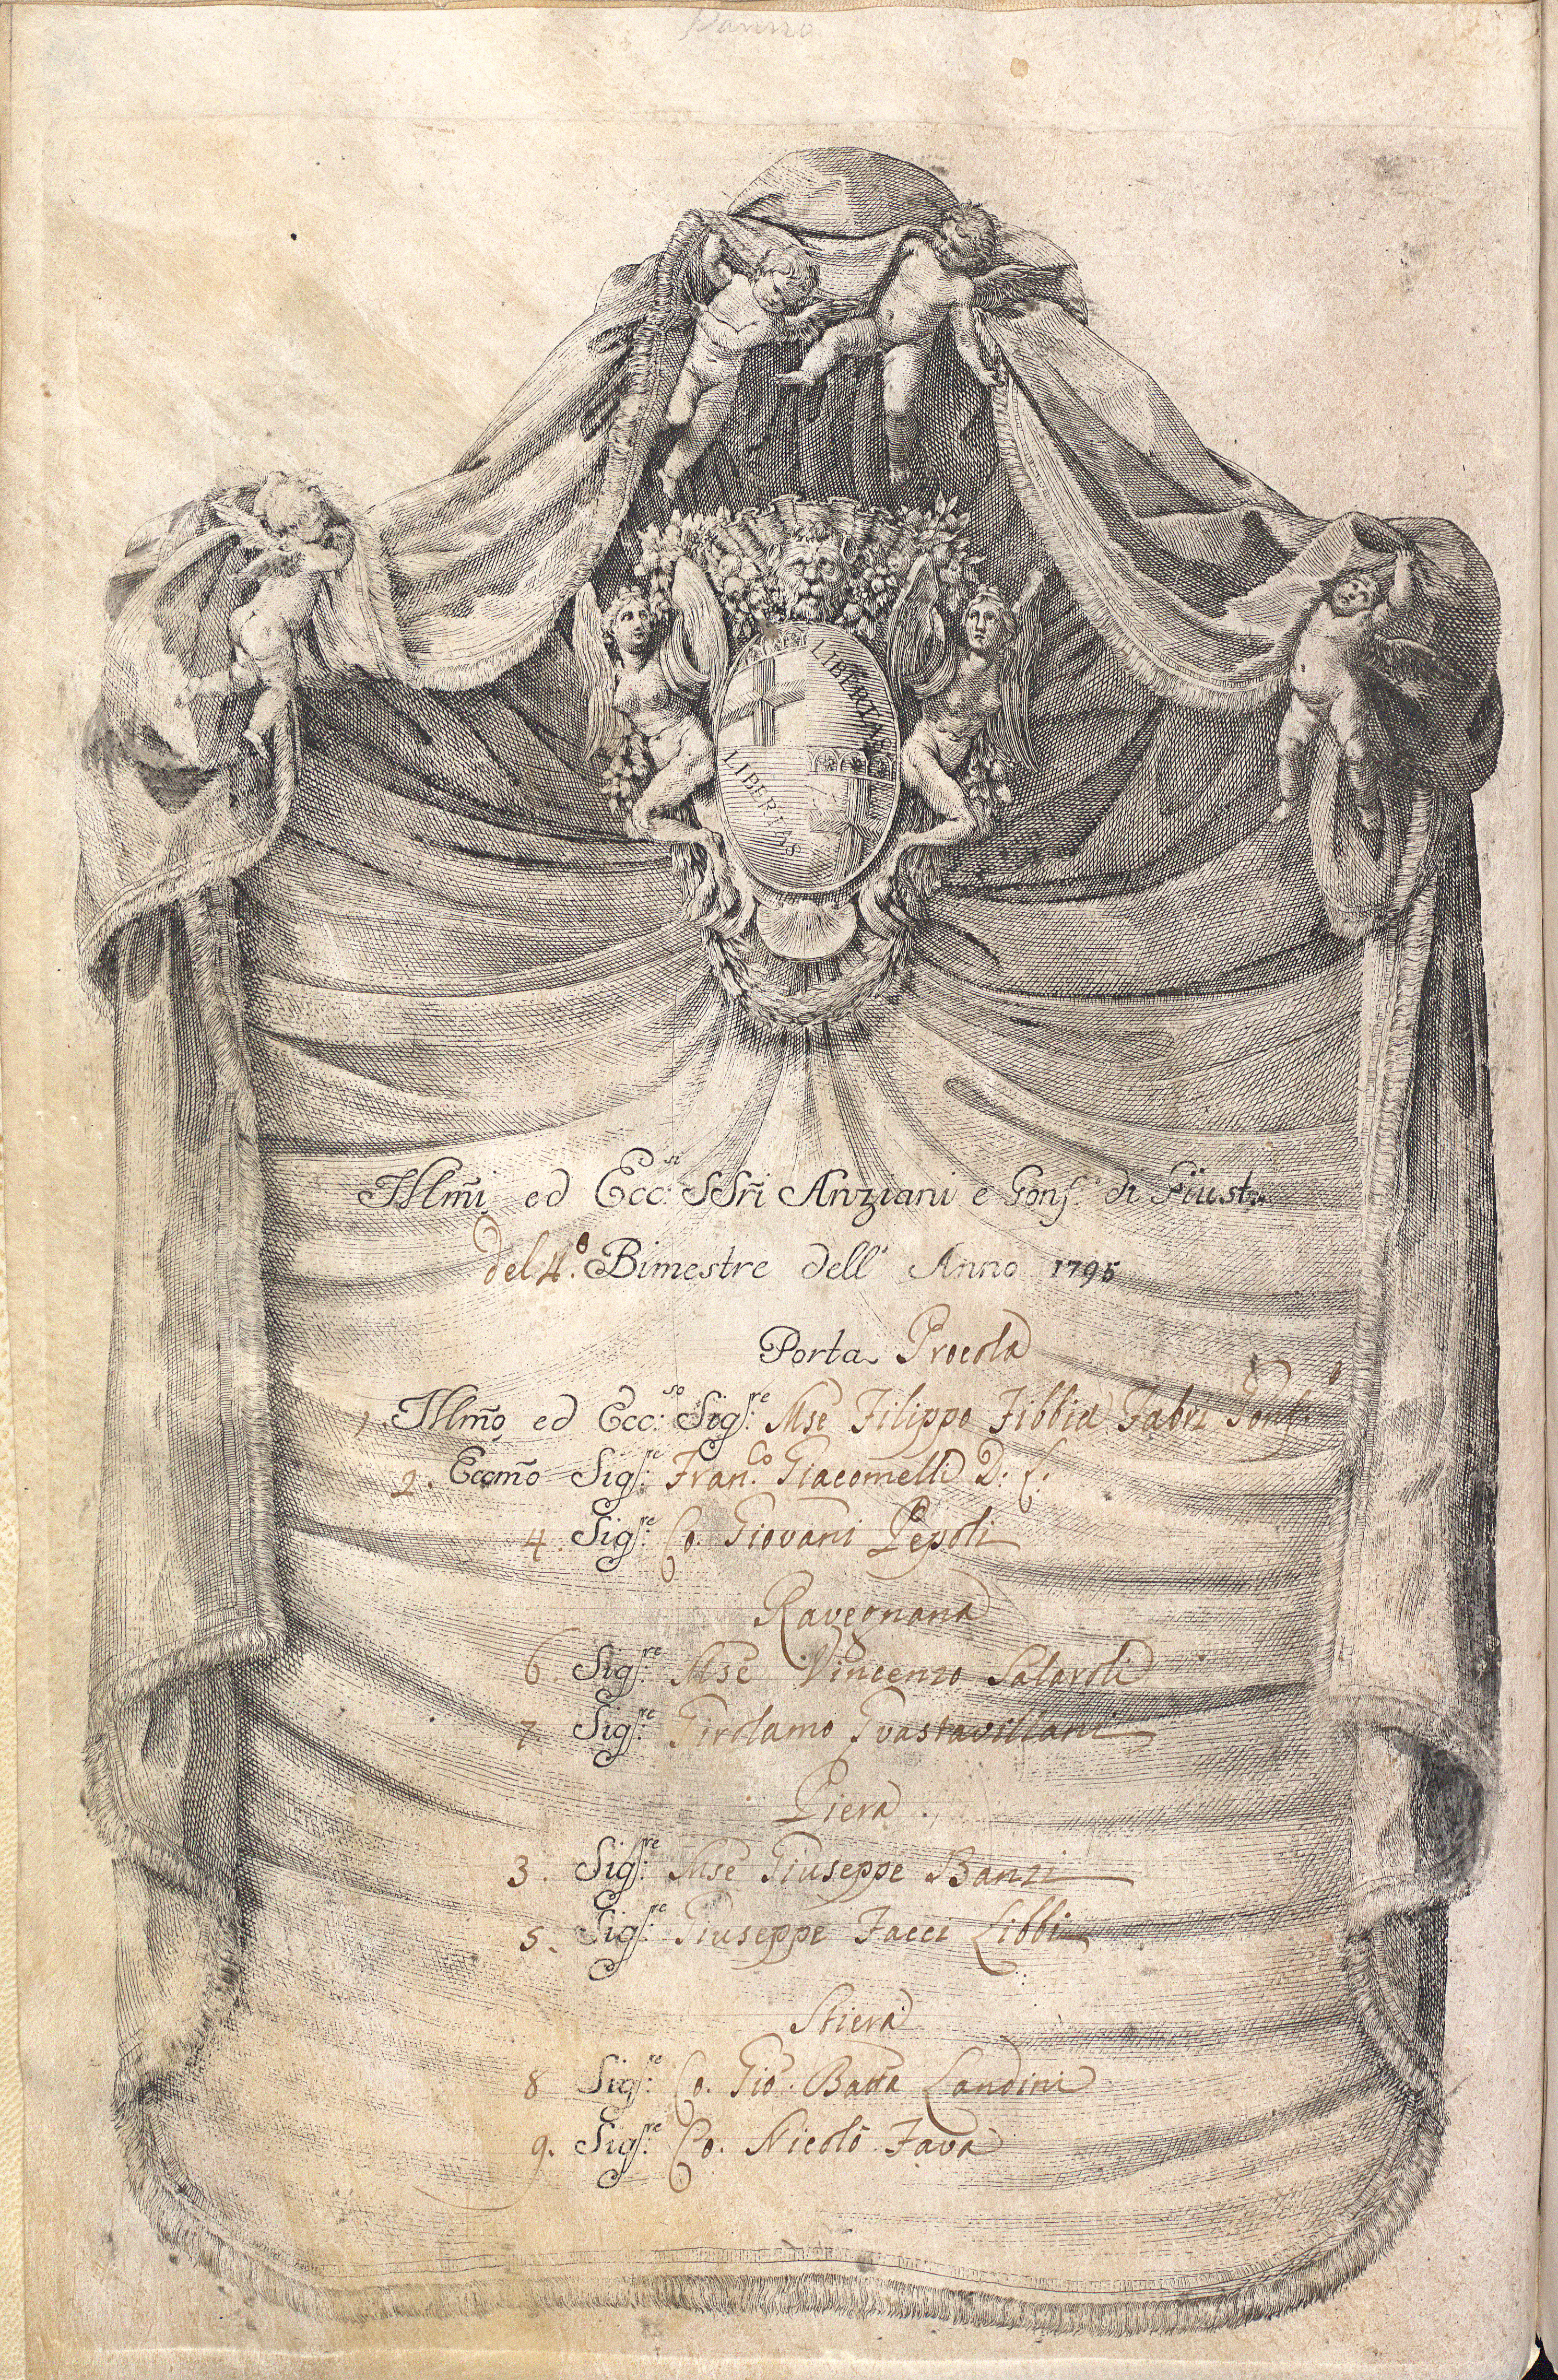 Panno
LIBERTAS
LIBERTAS
Illm̃i ed Ecc:si SSri Anziani e Conf.i di Giust.a
del 4.o Bimestre dell' Anno 1795
Porta Procola
1. Illm̃o ed Ecc:so Sigr:e Mse Filippo Fibbia Fabri Gonf.o
2. Eccm̃o Sigr:e Fran.co Giacomelli D. C.
4. Sigr:e Co. Giovani Pepoli
Ravegnana
6. Sigr:e Mse Vincenzo Salaroli
7 Sigr:e Girolamo Guastavillani
Piera
3. Sigr:e Mse Giuseppe Banzi
5. Sigr:e Giuseppe Facci Libbi
Stiera
8 Sigr:e Co. Gio. Batta Landini
9. Sigr:e Co. Nicolò Fava